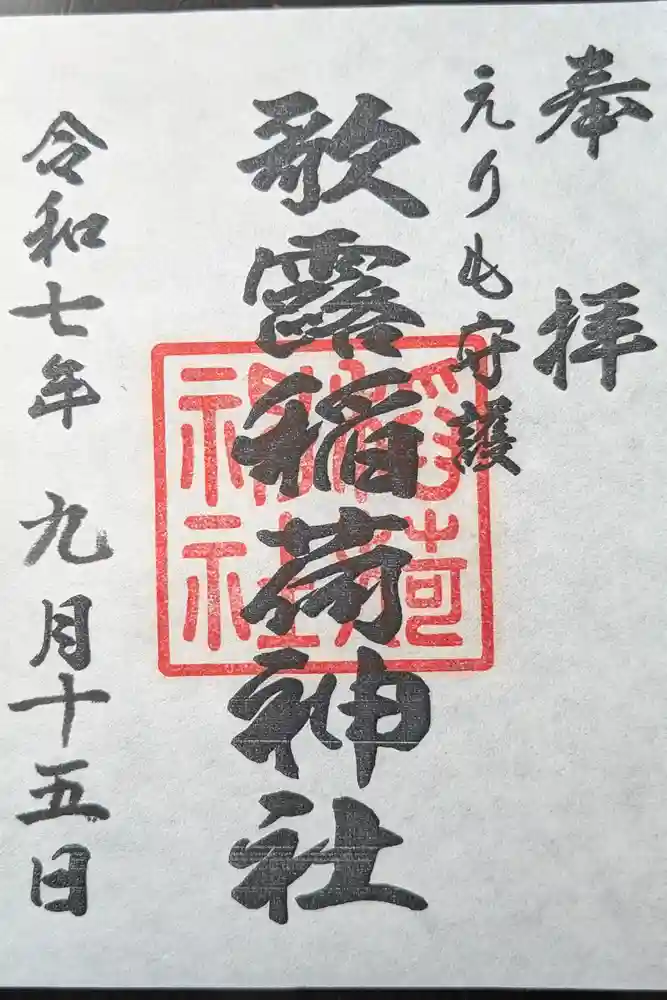 奉拝
えりも守護
歌露稲荷神社
令和七年九月十五日